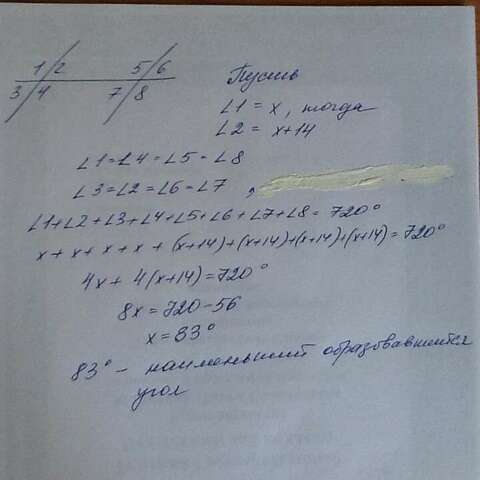 1 2 5 6
3 4 7 8
Пусть
∠1 = x, тогда
∠2 = x+14
∠1=∠4=∠5=∠8
∠3=∠2=∠6=∠7,
∠1+∠2+∠3+∠4+∠5+∠6+∠7+∠8=720°
x+x+x+x+(x+14)+(x+14)+(x+14)+(x+14)=720°
4x+4(x+14)=720°
8x=720-56
x=83°
83° - наименьший образовавшийся
угол